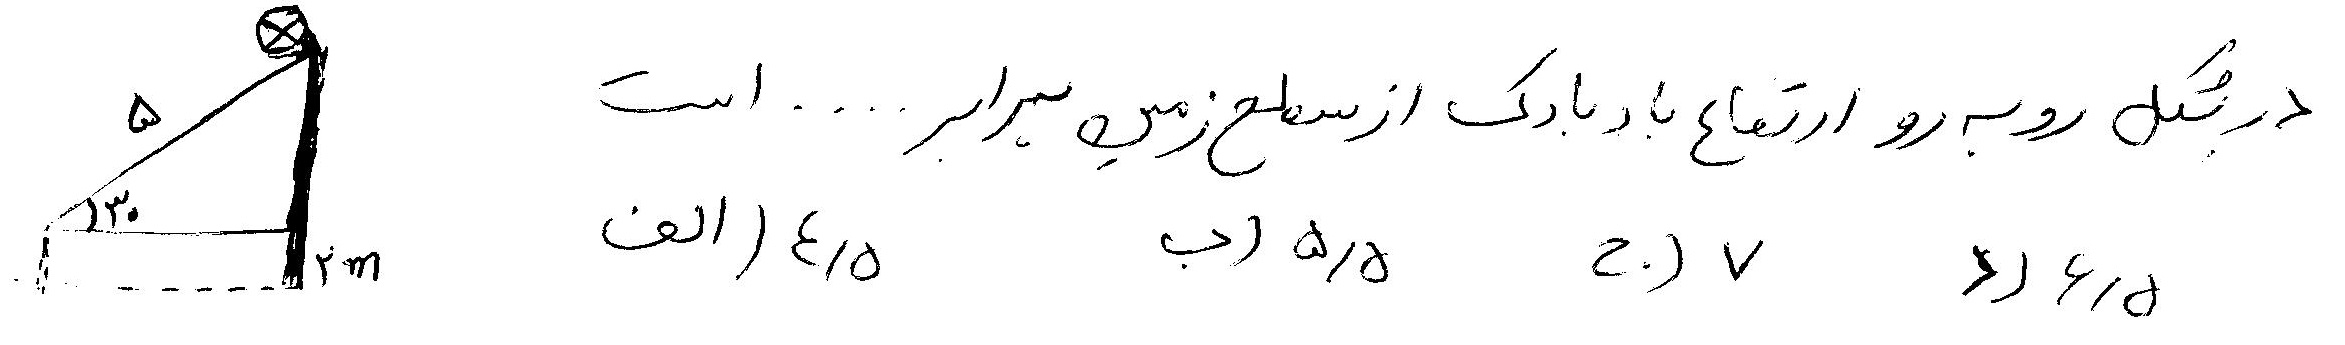 در شکل روبه رو ارتفاع بادبادک از سطح زمین برابر ..... است
الف) ٤/۵ ب) ۵/۵ ج) ۷ د) ۶/۵
۵
۳۰
۲m